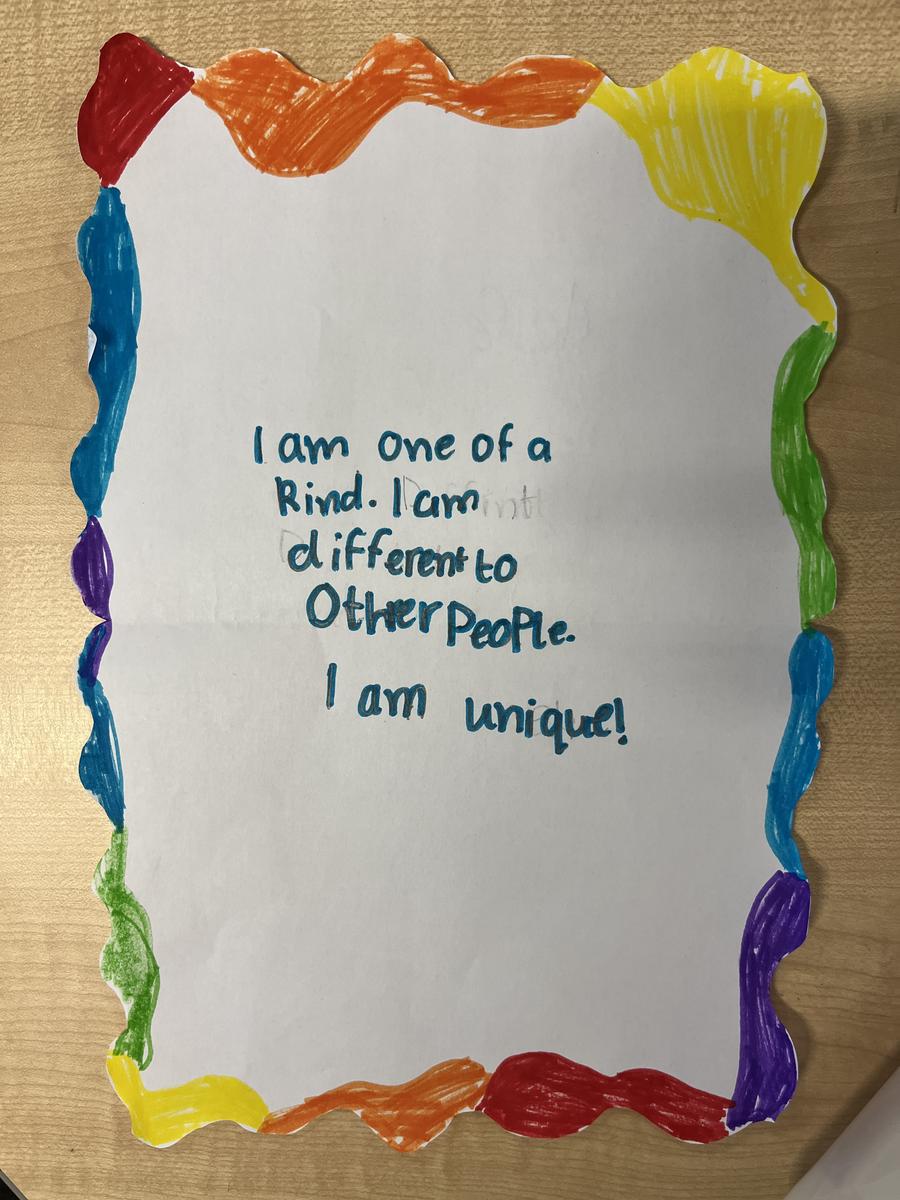 I am one of a
kind. I am
different to
Other People.
I am unique!